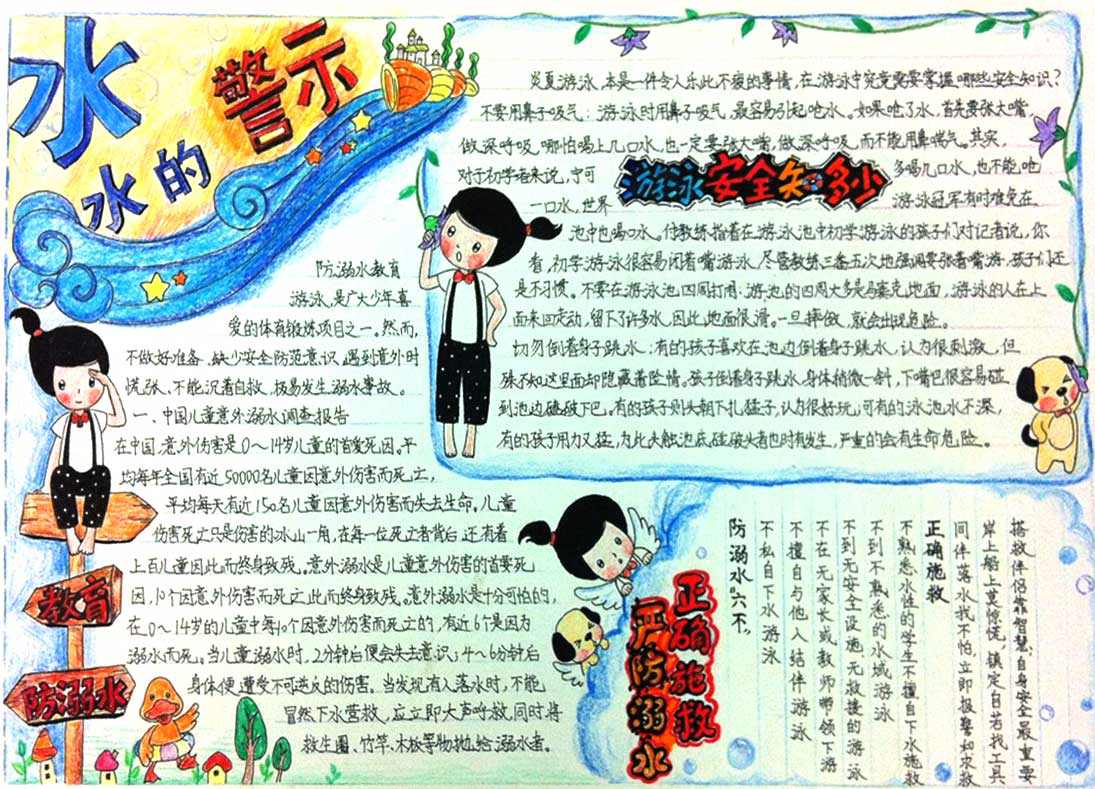 水
水的
警示
防溺水教育
游泳,是广大少年喜
爱的体育锻炼项目之一。然而,
不做好准备、缺少安全防范意识,遇到意外时
慌张、不能沉着自救,极易发生溺水事故。
一、中国儿童意外溺水调查报告
在中国,意外伤害是0~14岁儿童的首要死因。平
均每年全国有近50000名儿童因意外伤害而死亡,
平均每天有近150名儿童因意外伤害而失去生命。儿童
伤害死亡只是伤害的冰山一角,在每一位死亡者背后,还有着
上百儿童因此而终身致残。意外溺水是儿童意外伤害的首要死
因,10个因意外伤害而死亡此而终身致残。意外溺水是十分可怕的,
在0~14岁的儿童中每10个因意外伤害而死亡的,有近6个是因为
溺水而死。当儿童溺水时,2分钟后便会失去意识;4~6分钟后
身体便遭受不可逆反的伤害。当发现有人落水时,不能
冒然下水营救,应立即大声呼救,同时将
救生圈、竹竿、木板等物抛给溺水者。
教育
防溺水
炎夏游泳,本是一件令人乐此不疲的事情,在游泳中究竟需要掌握哪些安全知识?
不要用鼻子吸气:游泳时用鼻子吸气,最容易引起呛水。如果呛了水,首先要张大嘴,
做深呼吸,哪怕喝上几口水,也一定要张大嘴,做深呼吸,而不能用鼻喘气。其实,
对于初学者来说,宁可
多喝几口水,也不能呛
一口水,世界
游泳冠军有时难免在
游泳安全知多少
池中也喝口水。付教练指着在游泳池中初学游泳的孩子们对记者说,你
看,初学游泳很容易闭着嘴游泳,尽管教练三番五次地强调要张着嘴游,孩子们还
是不习惯。不要在游泳池四周打闹:游池的四周大多是马赛克地面,游泳的人在上
面来回走动,留下了许多水,因此,地面很滑。一旦摔倒,就会出现危险。
切勿倒着身子跳水:有的孩子喜欢在池边倒着身子跳水,认为很刺激,但
殊不知这里面却隐藏着险情。孩子倒着身子跳水,身体稍微一斜,下嘴巴很容易碰
到池边磕破下巴。有的孩子则头朝下扎猛子,认为很好玩,可有的泳池水不深,
有的孩子用力又猛,为此头触池底,碰破头者也时有发生,严重的会有生命危险。
正确施救
严防溺水
搭救伴侣靠智慧,自身安全最重要
岸上船上莫惊慌,镇定自若找工具
同伴落水我不怕,立即报警和求救
正确施救
不熟悉水性的学生不擅自下水施救
不到不熟悉的水域游泳
不到无安全设施、无救援的游泳
不在无家长或教师带领下游
不擅自与他人结伴游泳
不私自下水游泳
防溺水“六不”